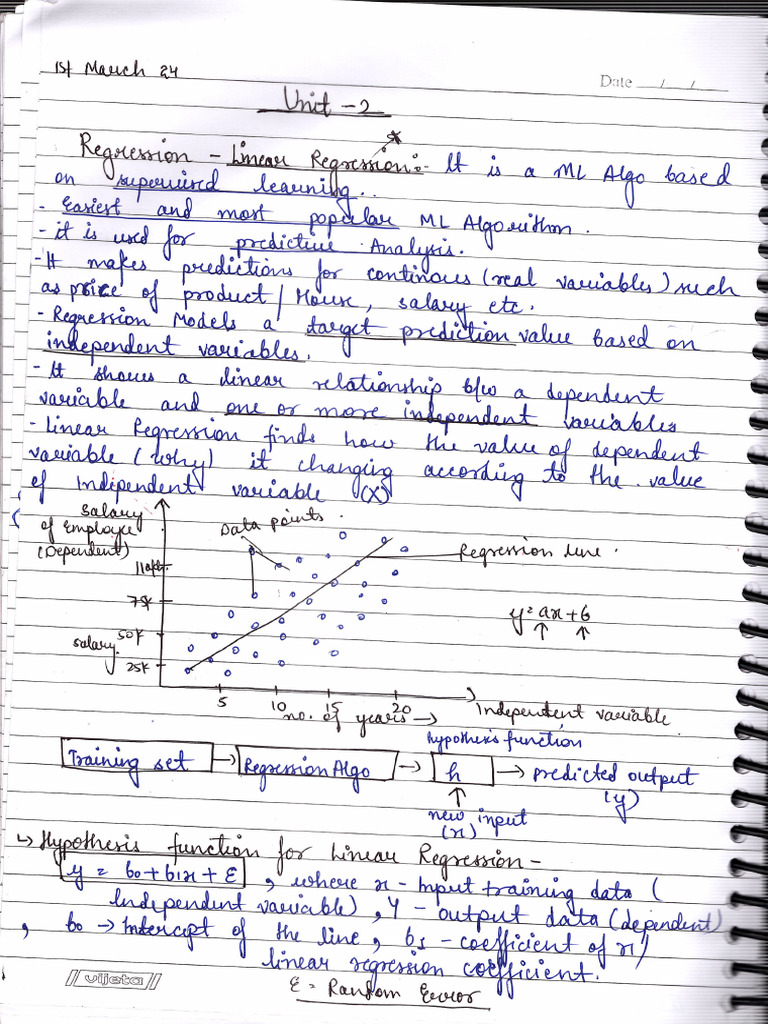 1st March 24
Date / /
Unit - 2
Regression - Linear Regression :- It is a ML Algo based
on supervised learning..
- Easiest and most popular ML Algorithm.
- it is used for predictive Analysis.
- It makes predictions for continous (real variables) such
as price of product / House, salary etc.
- Regression Models a target prediction value based on
independent variables.
- It shows a linear relationship b/w a dependent
variable and one or more independent variables
- Linear Regression finds how the value of dependent
variable (why) it changing according to the value
of indipendent variable (X)
Salary
of Employee
(Dependent)
Data points
Regression line.
75k
50k
25k
salary
y = ax + b
5 10 15 20
no. of years →
Independent variable
hypothesis function
Training set → Regression Algo → h → predicted output
(y)
new input
(x)
↳ Hypothesis function for Linear Regression -
y = b0 + b1x + ε , where x - Input training data (
Independent variable) , Y - output data (dependent)
, b0 → Intercept of the line, b1 - coefficient of x /
linear regression coefficient.
ε = Random Error
// vijeta //